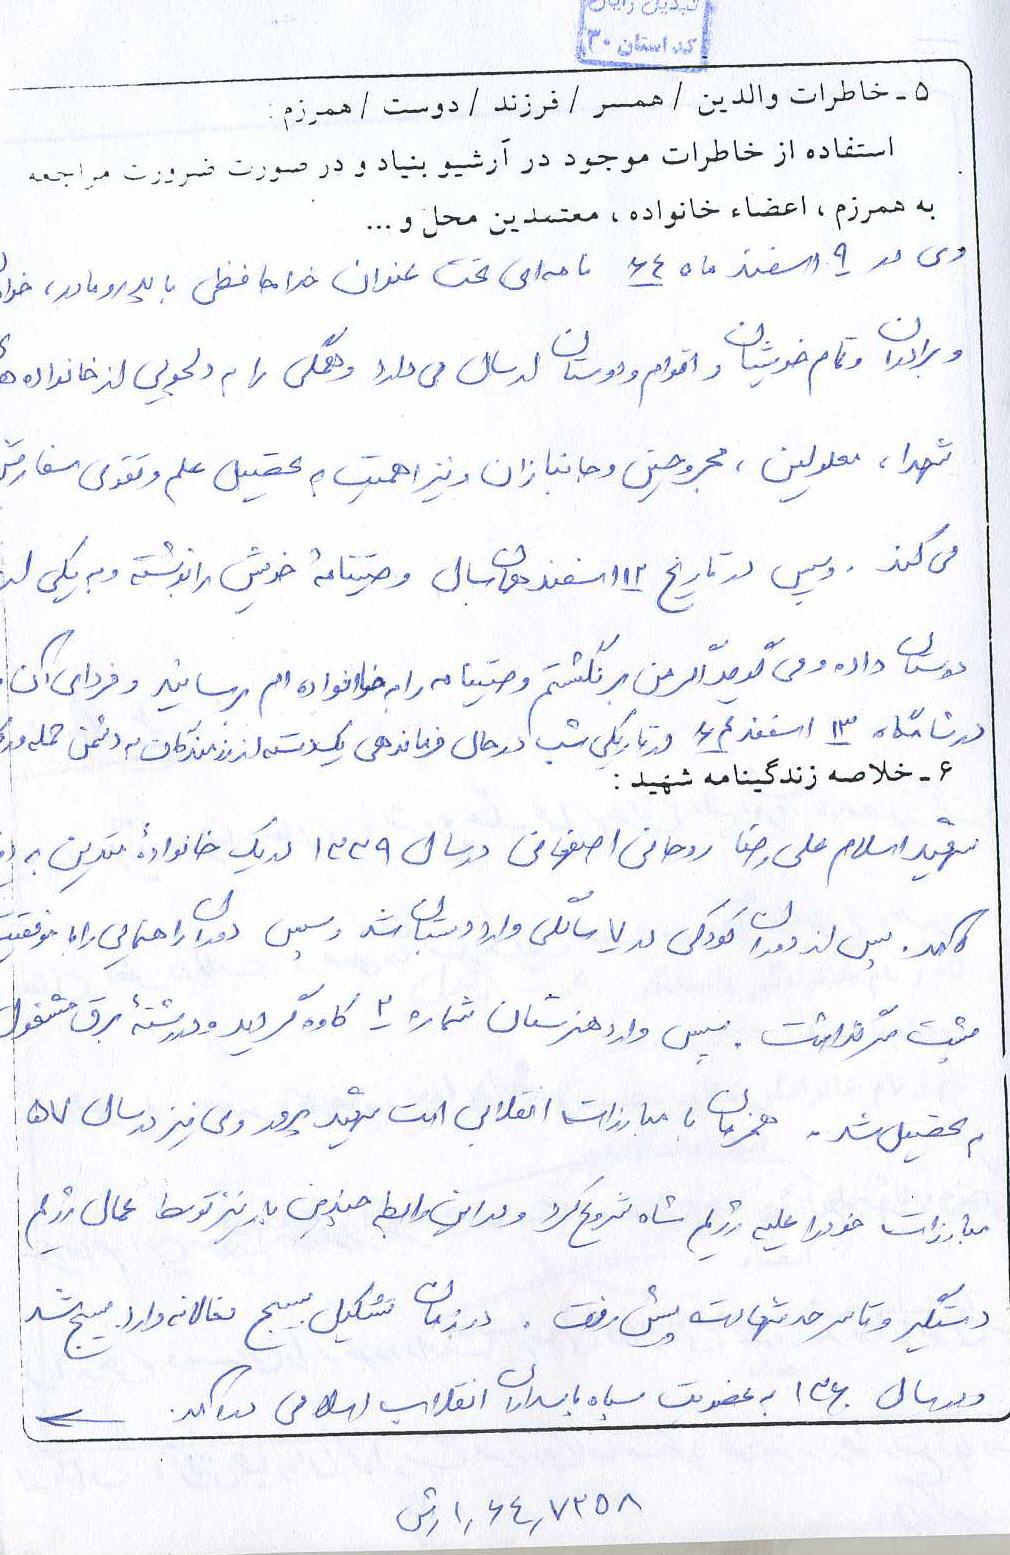 تبدیل رایان
کد استان ۳۰
۵ ـ خاطرات والدین / همسر / فرزند / دوست / همرزم :
استفاده از خاطرات موجود در آرشیو بنیاد و در صورت ضرورت مراجعه
به همرزم ، اعضاء خانواده ، معتمدین محل و ...
وی در ۹ اسفند ماه ۶۴ نامه‌ای تحت عنوان خداحافظی با پدر و مادر،
و برادران و تمام خویشان و اقوام و دوستان ارسال می دارد و همگی را به دلجویی از خانواده
شهدا ، معلولین ، مجروحین و جانبازان و نیز اهمیت به تحصیل علم و تقوی سفارش
می کند . و سپس در تاریخ ۱۲ اسفند همان سال وصیتنامهٔ خویش را نوشته و به یکی از
دوستان داده و می گوید اگر من برنگشتم وصیتنامه را به خانواده ام برسانید و فردای آن
در شامگاه ۱۳ اسفند ۶۴ در تاریکی شب در حال فرماندهی یکدسته از رزمندگان به دشمن حمله
۶ ـ خلاصه زندگینامه شهید :
شهید اسلام علی رضا روحانی اصفهانی در سال ۱۳۳۹ در یک خانوادهٔ متدین به
آمد . پس از دوران کودکی در ۷ سالگی وارد دبستان شد و سپس دوران راهنمایی را با موفقیت
مثبت گذراند . سپس وارد هنرستان شماره ۲ کاوه گردید و در رشتهٔ برق مشغول
به تحصیل شد . همزمان با مبارزات انقلابی امت شهید پرور وی نیز در سال ۵۷
مبارزات خود را علیه رژیم شاه شروع کرد و در این رابطه چندین بار نیز توسط عمال رژیم
دستگیر و تا سر حد شهادت پیش رفت . در زمان تشکیل بسیج فعالانه وارد بسیج شد
و در سال ۱۳۶۰ به عضویت سپاه پاسداران انقلاب اسلامی درآمد .